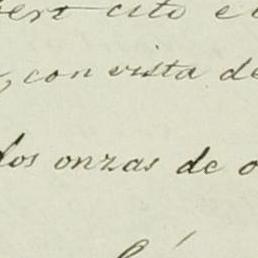 cito e
con vista de
dos onzas de o